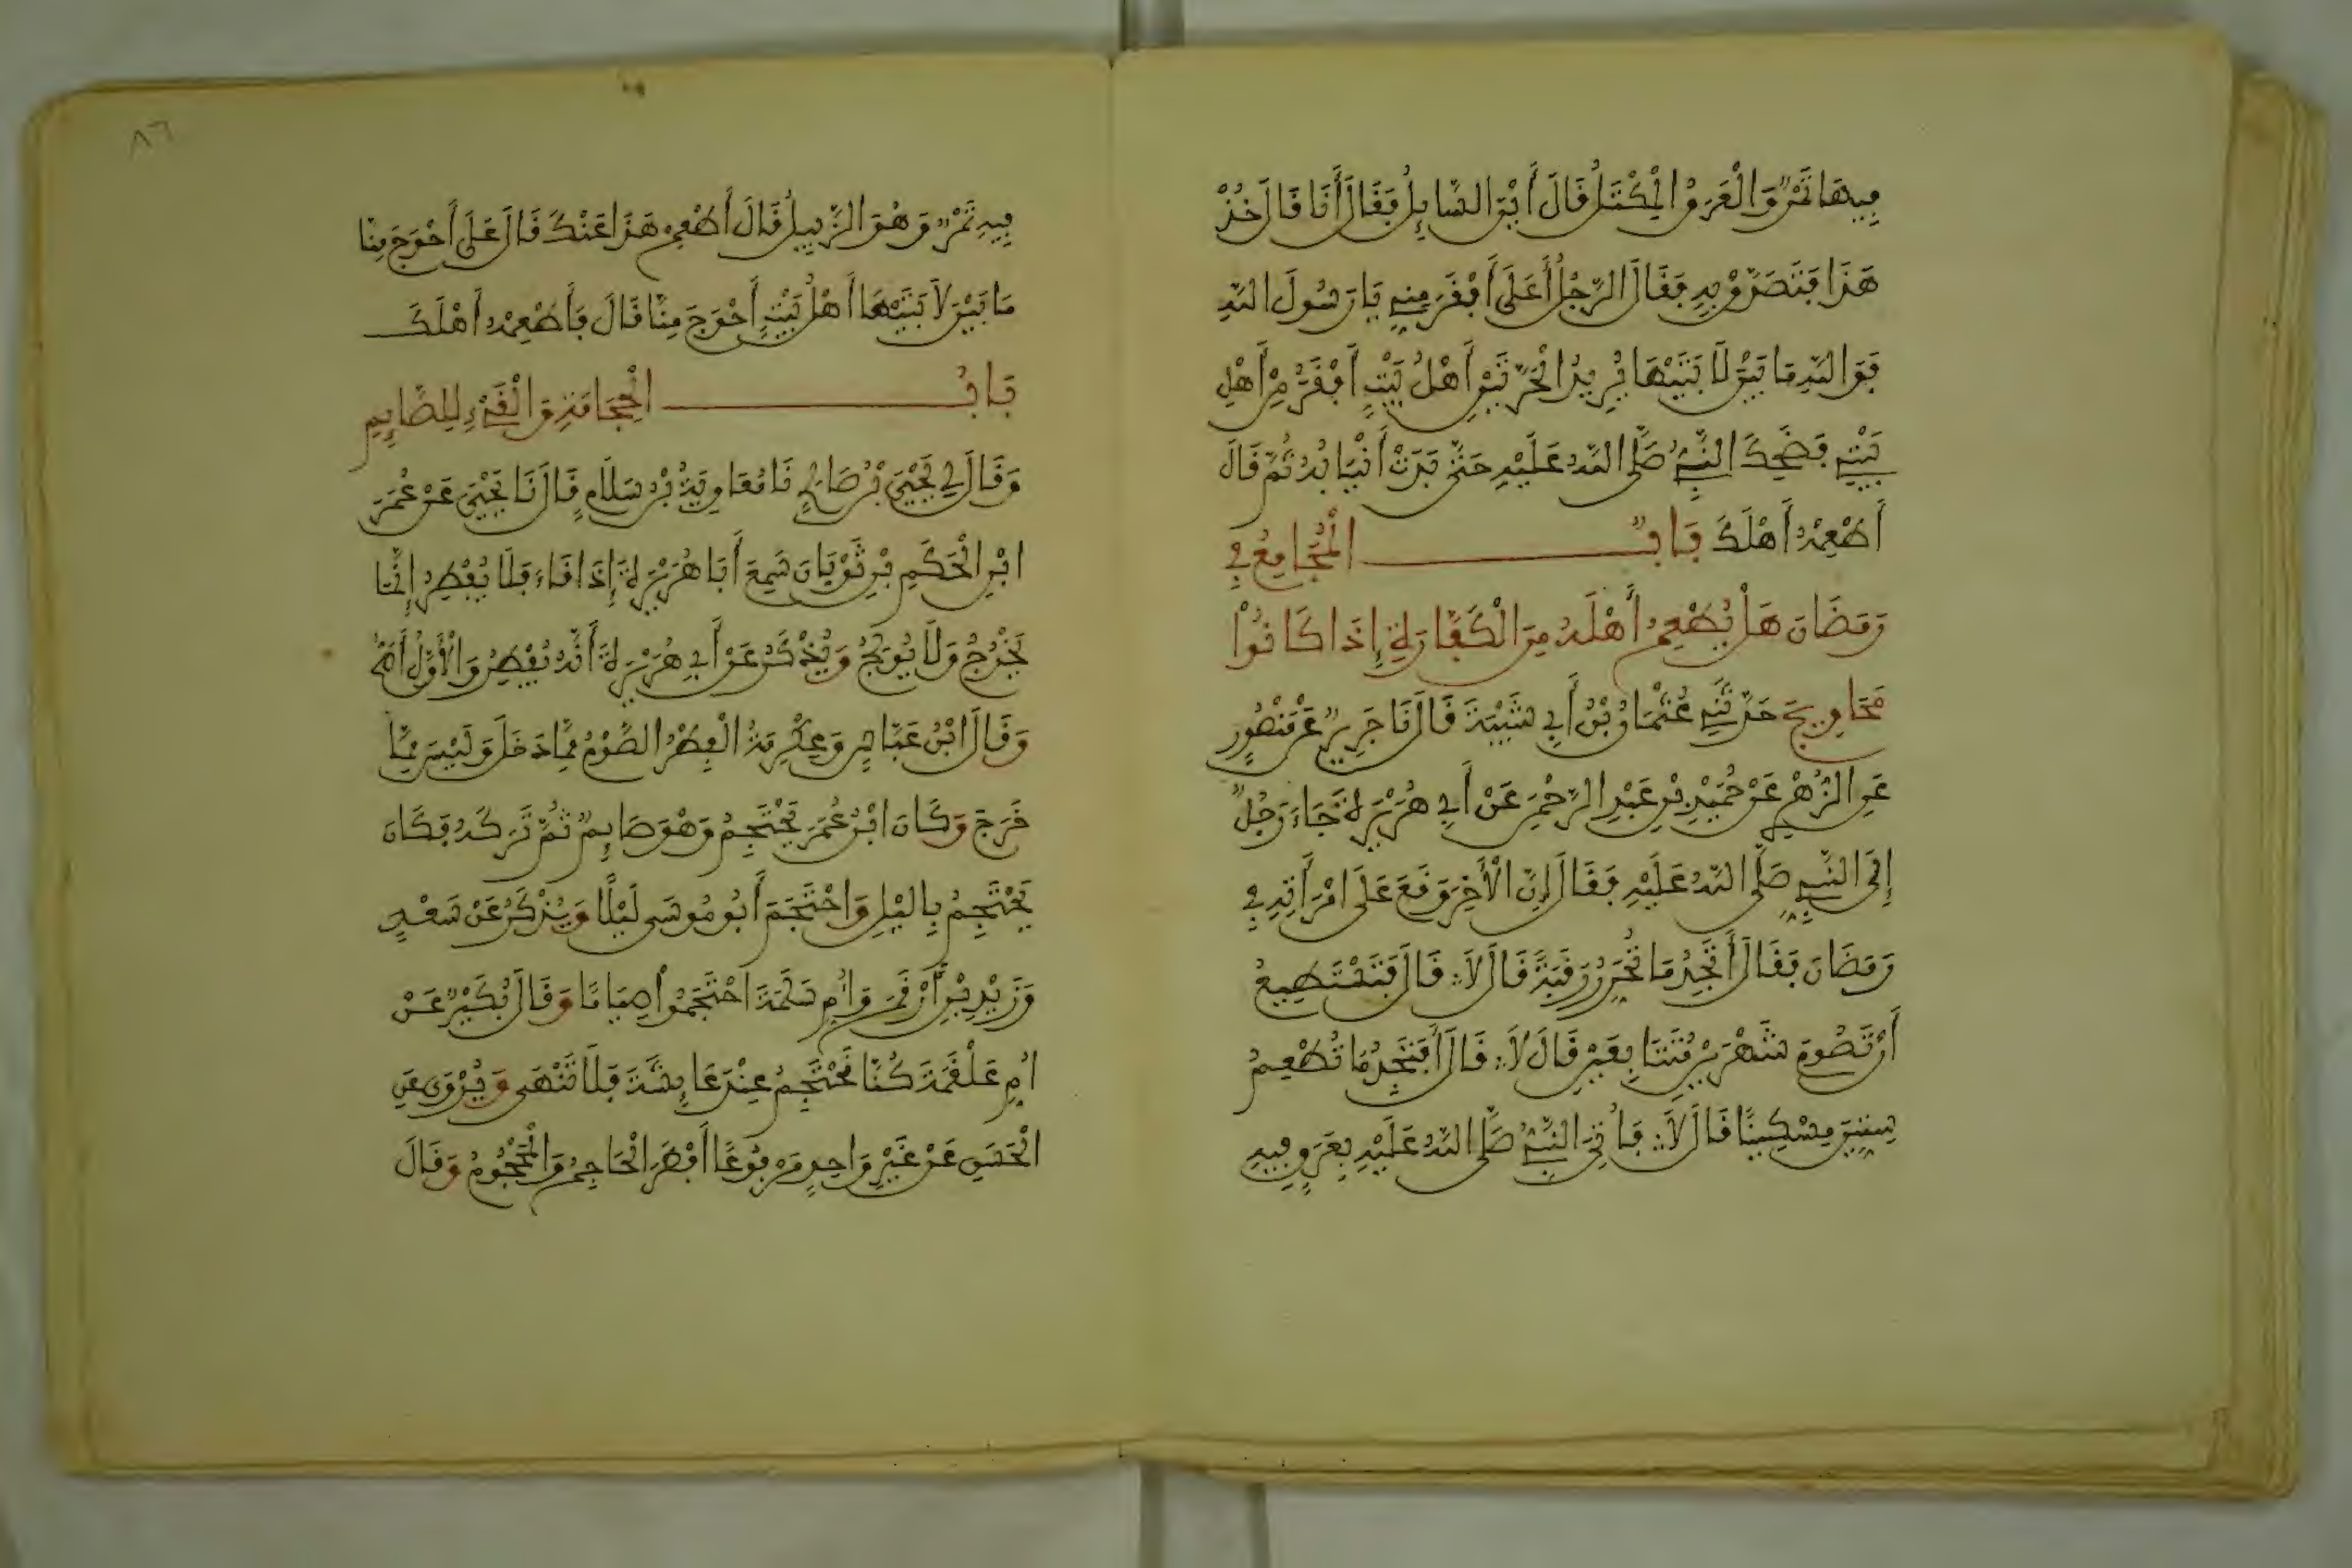 فِيهَا تَمْرٌ وَالْعَرَقُ الْمِكْتَلُ قَالَ أَيْنَ السَّايِلُ فَقَالَ أَنَا قَالَ خُذْ
هَذَا فَتَصَدَّقْ بِهِ فَقَالَ الرَّجُلُ أَعَلَى أَفْقَرَ مِنِّي يَا رَسُولَ اللَّهِ
فَوَاللَّهِ مَا بَيْنَ لَابَتَيْهَا يُرِيدُ الْحَرَّتَيْنِ أَهْلُ بَيْتٍ أَفْقَرُ مِنْ أَهْلِ
بَيْتِي فَضَحِكَ النَّبِيُّ صَلَّى اللَّهُ عَلَيْهِ حَتَّى بَدَتْ أَنْيَابُهُ ثُمَّ قَالَ
أَطْعِمْهُ أَهْلَكَ بَابُ الْمُجَامِعِ فِي
رَمَضَانَ هَلْ يُطْعِمُ أَهْلَهُ مِنَ الْكَفَّارَةِ إِذَا كَانُوا
مَحَاوِيجَ حَدَّثَنِي عُثْمَانُ بْنُ أَبِي شَيْبَةَ قَالَ نَا جَرِيرٌ عَنْ مَنْصُورٍ
عَنِ الزُّهْرِيِّ عَنْ حُمَيْدِ بْنِ عَبْدِ الرَّحْمَنِ عَنْ أَبِي هُرَيْرَةَ جَاءَ رَجُلٌ
إِلَى النَّبِيِّ صَلَّى اللَّهُ عَلَيْهِ فَقَالَ إِنَّ الْأَخِرَ وَقَعَ عَلَى امْرَأَتِهِ فِي
رَمَضَانَ فَقَالَ أَتَجِدُ مَا تُحَرِّرُ رَقَبَةً قَالَ لَا قَالَ فَتَسْتَطِيعُ
أَنْ تَصُومَ شَهْرَيْنِ مُتَتَابِعَيْنِ قَالَ لَا قَالَ أَفَتَجِدُ مَا تُطْعِمُ
سِتِّينَ مِسْكِينًا قَالَ لَا فَأُتِيَ النَّبِيُّ صَلَّى اللَّهُ عَلَيْهِ بِعَرَقٍ فِيهِ
٨٦
فِيهِ تَمْرٌ وَهُوَ الزَّبِيلُ قَالَ أَطْعِمْ هَذَا عَنْكَ قَالَ عَلَى أَحْوَجَ مِنَّا
مَا بَيْنَ لَابَتَيْهَا أَهْلُ بَيْتٍ أَحْوَجَ مِنَّا قَالَ فَأَطْعِمْهُ أَهْلَكَ
بَابُ الْحِجَامَةِ وَالْقَيْءِ لِلصَّايِمِ
وَقَالَ لِي يَحْيَى بْنُ صَالِحٍ نَا مُعَاوِيَةُ بْنُ سَلَّامٍ قَالَ نَا يَحْيَى عَنْ عُمَرَ
ابْنِ الْحَكَمِ بْنِ ثَوْبَانَ سَمِعَ أَبَا هُرَيْرَةَ إِذَا قَاءَ فَلَا يُفْطِرُ إِنَّمَا
يُخْرِجُ وَلَا يُولِجُ وَيُذْكَرُ عَنْ أَبِي هُرَيْرَةَ أَنَّهُ يُفْطِرُ وَالْأَوَّلُ أَصَحُّ
وَقَالَ ابْنُ عَبَّاسٍ وَعِكْرِمَةُ الْفِطْرُ الصَّوْمُ مِمَّا دَخَلَ وَلَيْسَ مِمَّا
خَرَجَ وَكَانَ ابْنُ عُمَرَ يَحْتَجِمُ وَهُوَ صَايِمٌ ثُمَّ تَرَكَهُ فَكَانَ
يَحْتَجِمُ بِاللَّيْلِ وَاحْتَجَمَ أَبُو مُوسَى لَيْلًا وَيُذْكَرُ عَنْ سَعْدٍ
وَزَيْدِ بْنِ أَرْقَمَ وَأُمِّ سَلَمَةَ احْتَجَمُوا صِيَامًا وَقَالَ بُكَيْرٌ عَنْ
أُمِّ عَلْقَمَةَ كُنَّا نَحْتَجِمُ عِنْدَ عَايِشَةَ فَلَا نُنْهَى وَيُرْوَى عَنِ
الْحَسَنِ عَنْ غَيْرِ وَاحِدٍ مَرْفُوعًا أَفْطَرَ الْحَاجِمُ وَالْمَحْجُومُ وَقَالَ